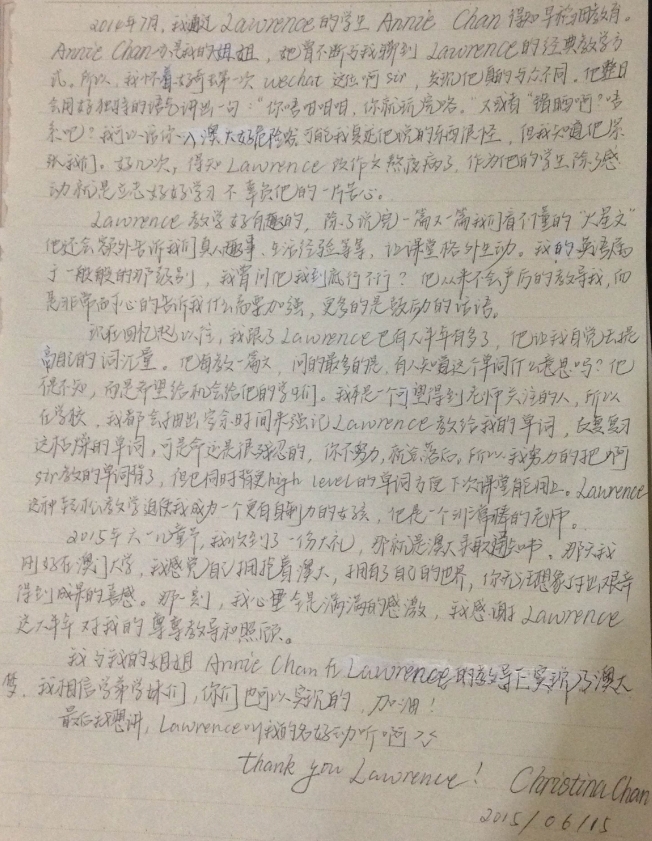 2014年7月，我通过Lawrence的学生Annie Chan得知早稻田教育。
Annie Chan亦是我的姐姐，她曾不断与我聊到Lawrence的经典教学方
式。所以，我怀着好奇第一次wechat这位阿sir，发现他真的与众不同，他整日
会用好独特的语气讲出一句："你唔咁咁咁，你就玩完咯。"又或者"错晒啊？唔
系吧？我可以话你入澳大好危险咯"可能我真觉他说的东西很怪，但我知道他紧
张我们。好几次，得知Lawrence改作文熬夜病了，作为他的学生除了感
动就是立志好好学习不辜负他的一片苦心。
Lawrence教学好有趣的，除了说完一篇又一篇我们看不懂的"火星文"
他还会额外告诉我们真人趣事、生活经验等等，让课堂格外生动。我的英语属
于一般般的那级别，我曾问他我到底行不行？他从来不会严厉的教导我，而
是非常耐心的告诉我什么需要加强，更多的是鼓励的话语。
现在回忆起以往，我跟了Lawrence已有大半年有多了，他让我自觉去提
高自己的词汇量。他每教一篇文，问的最多的是，有人知道这个单词什么意思吗？他
不是不知，而是希望给机会给他的学生们。我亦是一个渴望得到老师关注的人，所以
在学校，我都会抽出空余时间来强记Lawrence教给我的单词，反复复习
这枯燥的单词，可是命运是很残忍的，你不努力，就会落后。所以我努力的把阿
sir教的单词背了，但也同时背更high level的单词方便下次课堂能用上。Lawrence
这种轻松教学迫使我成为一个更有自制力的女孩，他是一个 的老师。
2015年六一儿童节，我收到了一份大礼，那就是澳大录取通知书。那天我
刚好在澳门大学，我感觉自己拥抱着澳大，拥有了自己的世界，你无法想象付出艰辛
得到成果的喜感。那一刻，我心里全是满满的感激，我感谢Lawrence
这大半年对我的尊尊教导和照顾。
我与我的姐姐Annie Chan在Lawrence的教导下实现了澳大
梦，我相信学弟学妹们，你们也可以实现的，加油！
最后我想讲，Lawrence叫我的名好动听啊
thank you Lawrence！ Christina Chan
2015/06/15